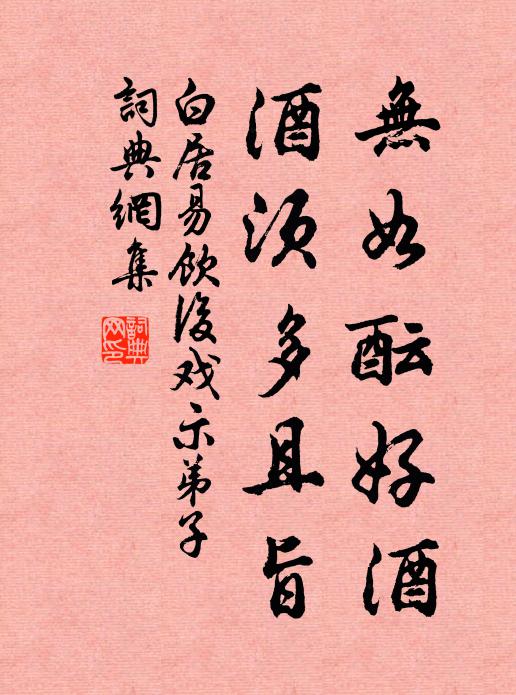 無如酝好酒
酒须多且旨
白居易飲後戏示弟子
詞典網集
詞典网印